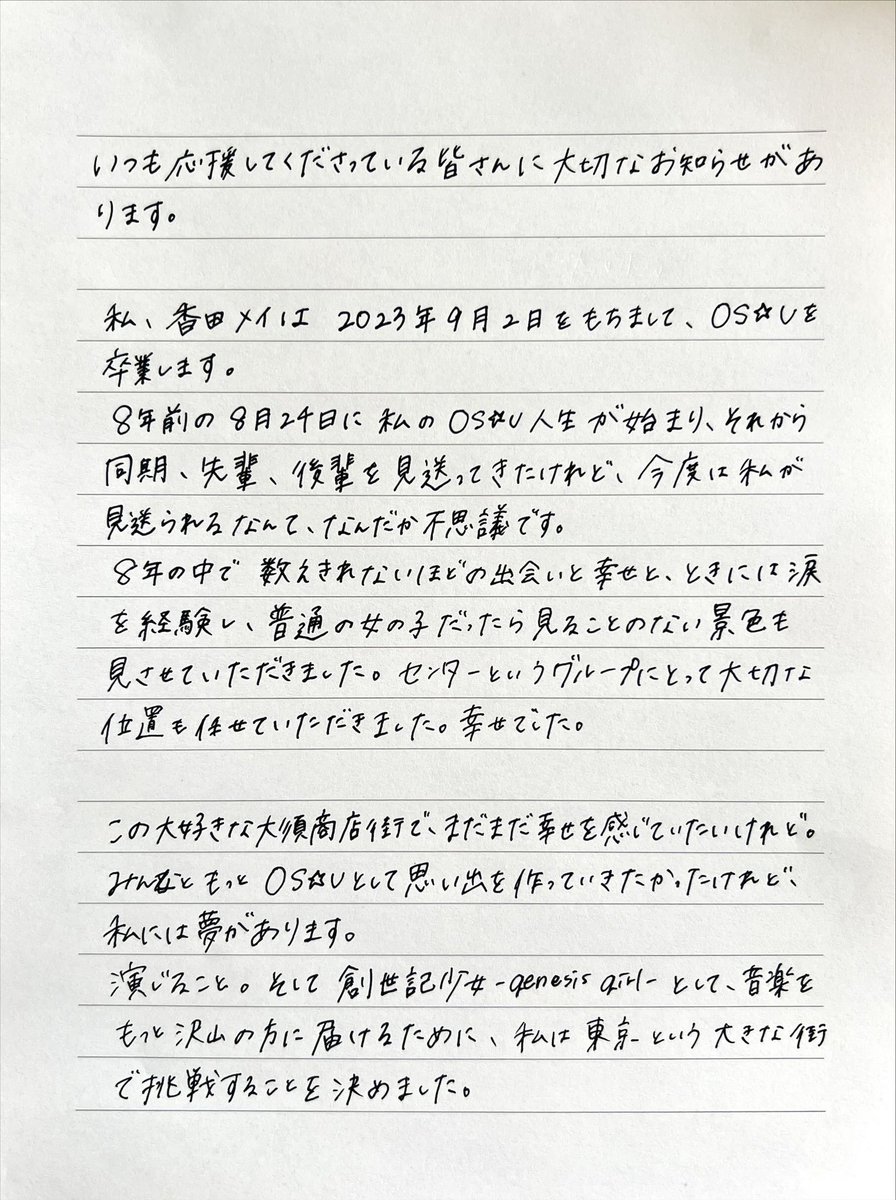 いつも応援してくださっている皆さんに大切なお知らせがあ
ります。
私、香田メイは 2023年9月2日をもちまして、OS☆Uを
卒業します。
8年前の8月24日に私のOS☆U人生が始まり、それから
同期、先輩、後輩を見送ってきたけれど、今度は私が
見送られるなんて、なんだか不思議です。
8年の中で 数えきれないほどの出会いと幸せと、ときには涙
を経験し、普通の女の子だったら見ることのない景色も
見させていただきました。センターというグループにとって大切な
位置も任せていただきました。幸せでした。
この大好きな大須商店街で、まだまだ幸せを感じていたいけれど。
みんなともっとOS☆Uとして思い出を作っていきたかったけれど、
私には夢があります。
演じること。そして 創世記少女-genesis girl- として、音楽を
もっと沢山の方に届けるために、私は東京という大きな街
で挑戦することを決めました。